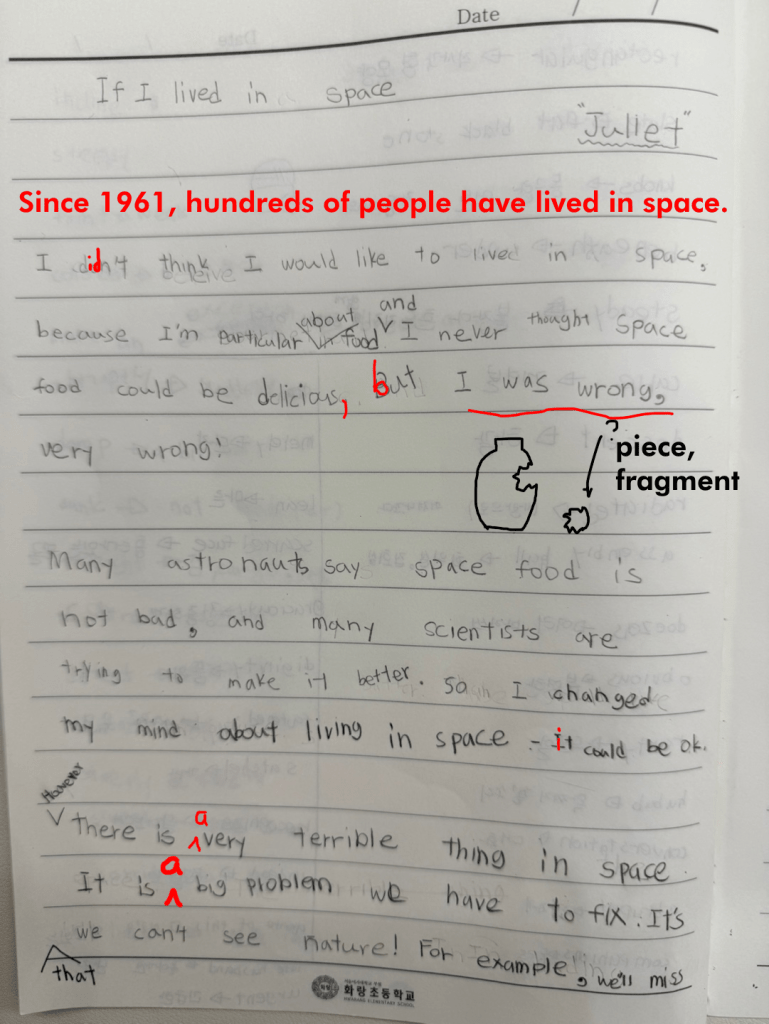 Date / /
If I lived in space
"Jullet"
Since 1961, hundreds of people have lived in space.
I didn't think I would like to lived in space,
because I'm particular about food and I never thought space
food could be delicious, but I was wrong,
very wrong!
?
piece,
fragment
Many astronauts say space food is
not bad, and many scientists are
trying to make it better. So I changed
my mind about living in space - it could be ok.
However
there is a very terrible thing in space
It is a big problem we have to fix. It's
that we can't see nature! For example, we'll miss
화랑초등학교